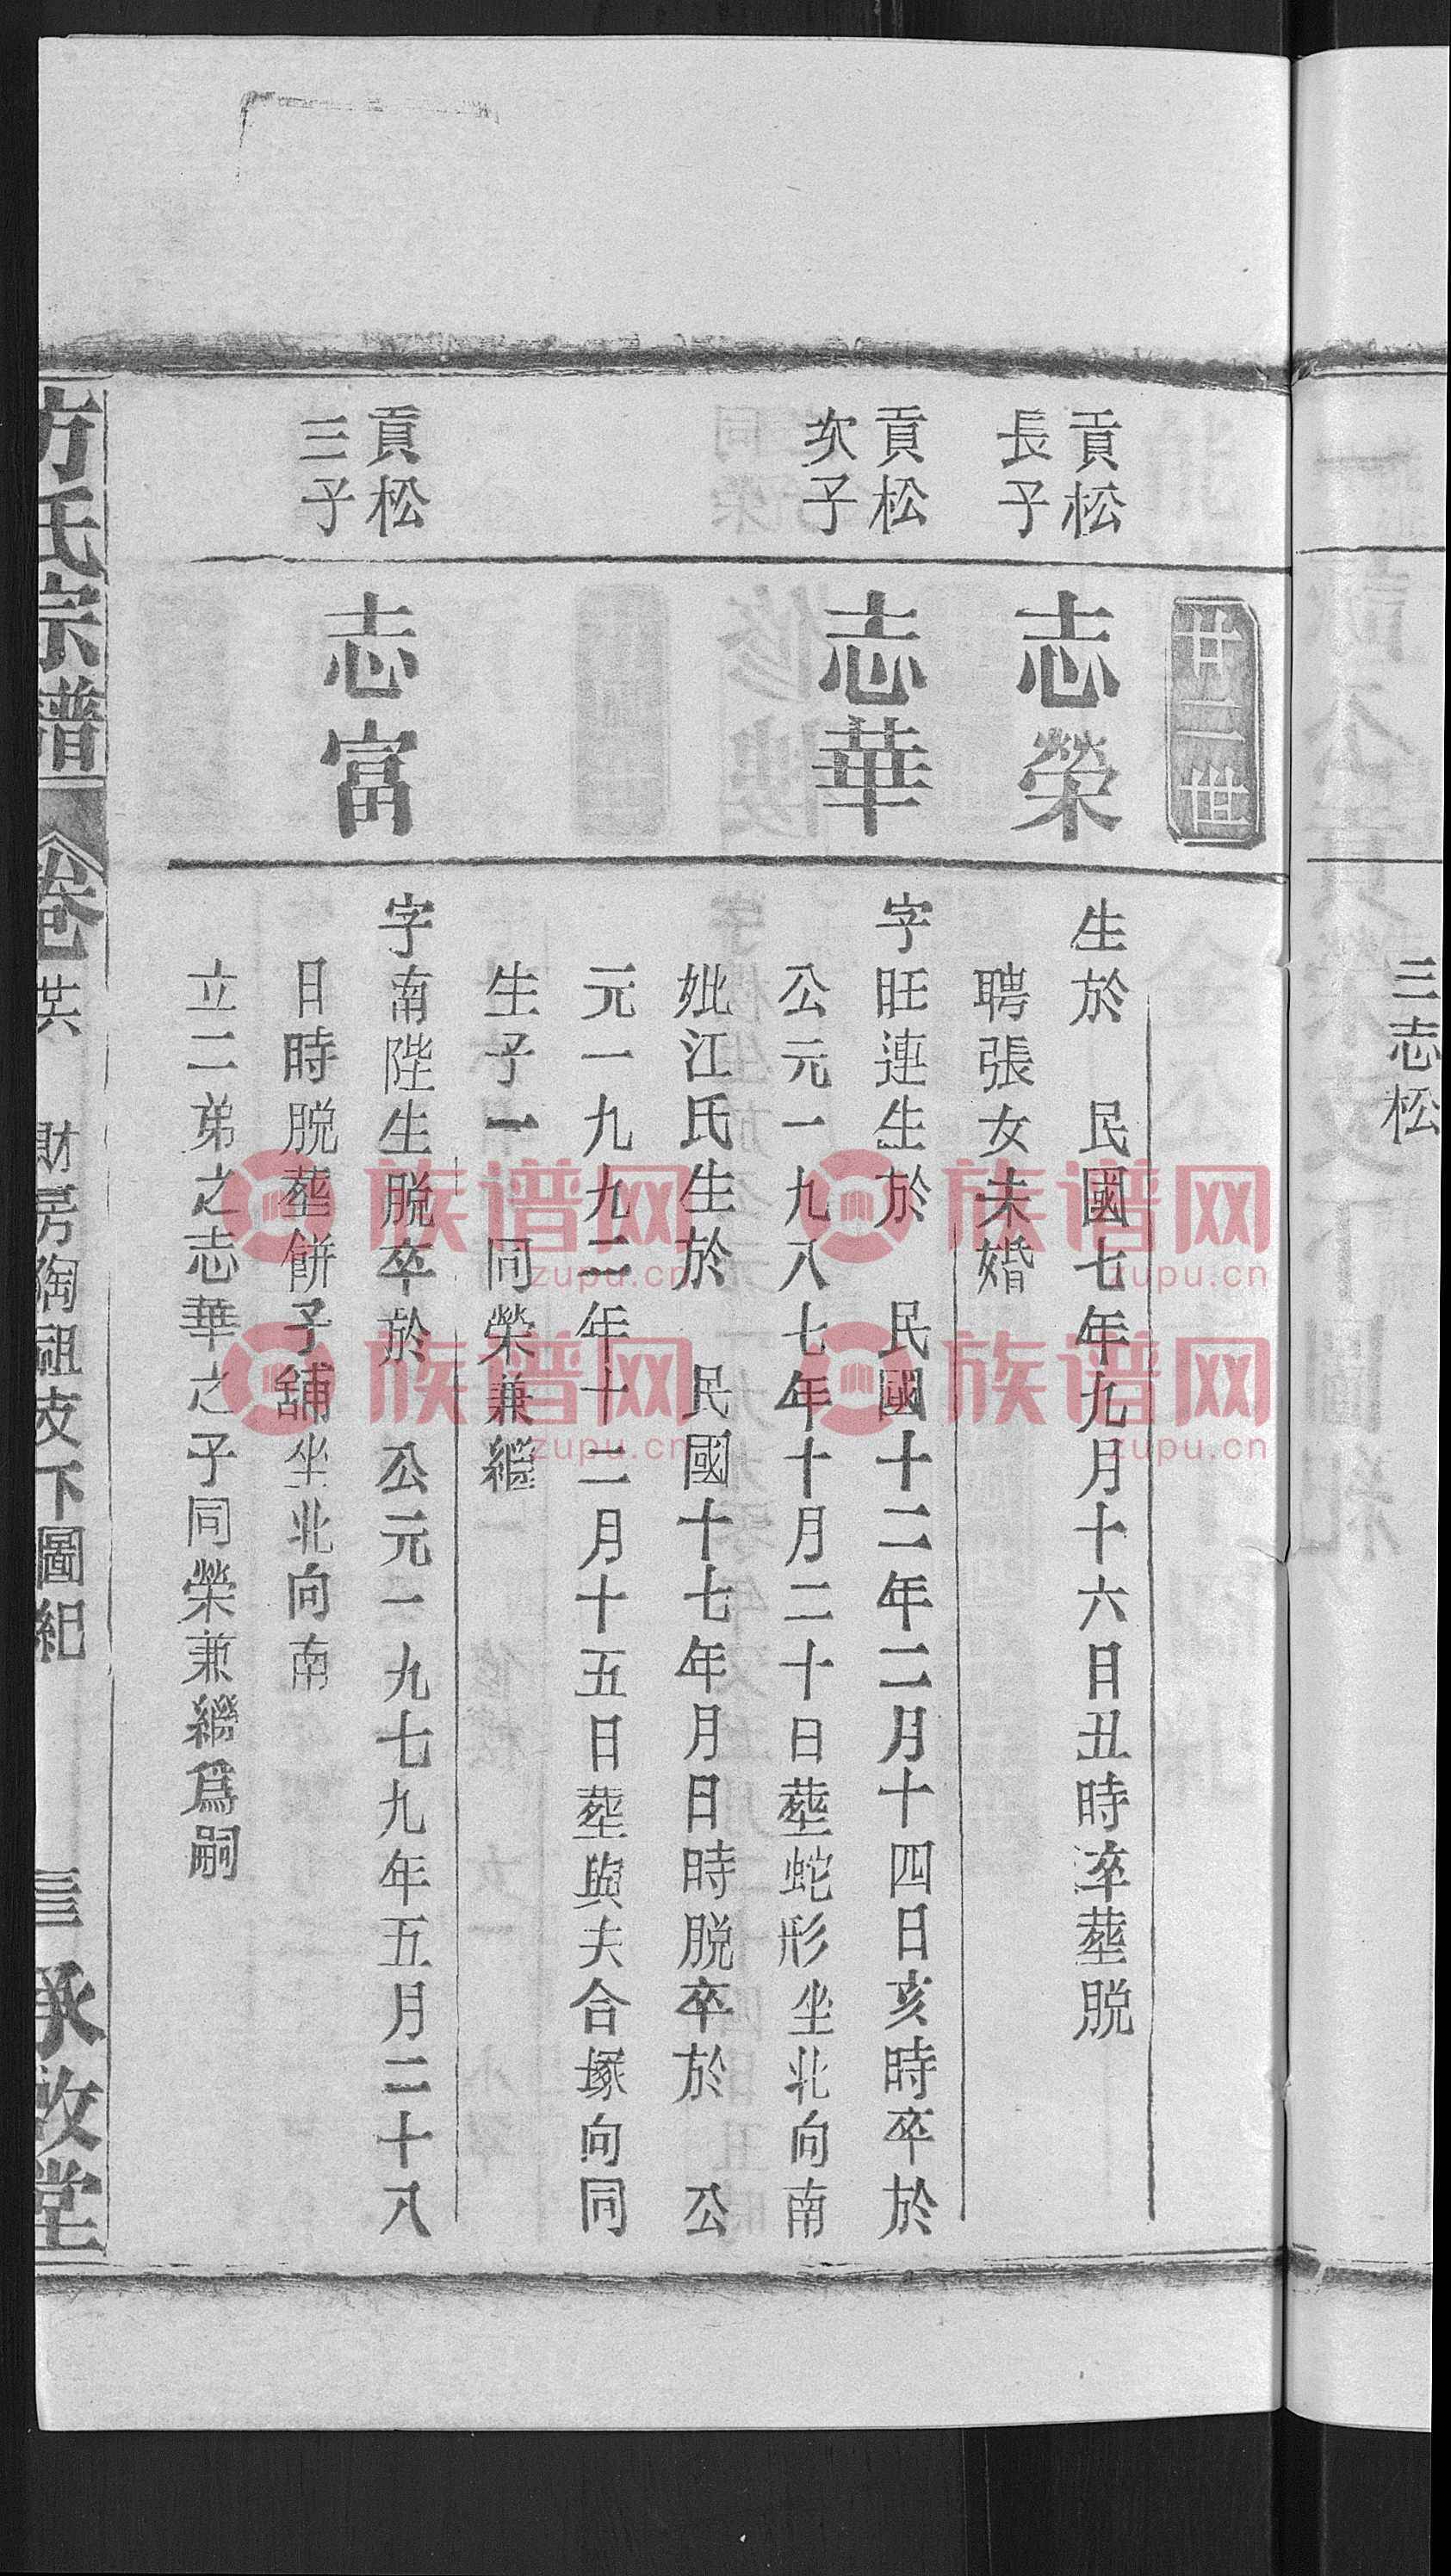 三志松
廿二世
貢松
長子
志榮
生於 民國七年九月十六日丑時卒塟脱
聘張女未婚
貢松
次子
志華
字旺連生於 民國十二年二月十四日亥時卒於
公元一九八七年十月二十日塟蛇形坐北向南
妣江氏生於 民國十七年月日時脱卒於 公
元一九九二年十二月十五日塟與夫合塚向同
生子一 同榮兼繼
貢松
三子
志富
字南陛生脱卒於 公元一九七九年五月二十八
日時脱塟餅子舖坐北向南
立二弟之志華之子同榮兼繼爲嗣
方氏宗譜 卷 財房陶祖支下圖紀 承敘堂
族谱网
zupu.cn
族谱网
zupu.cn
族谱网
zupu.cn
族谱网
zupu.cn